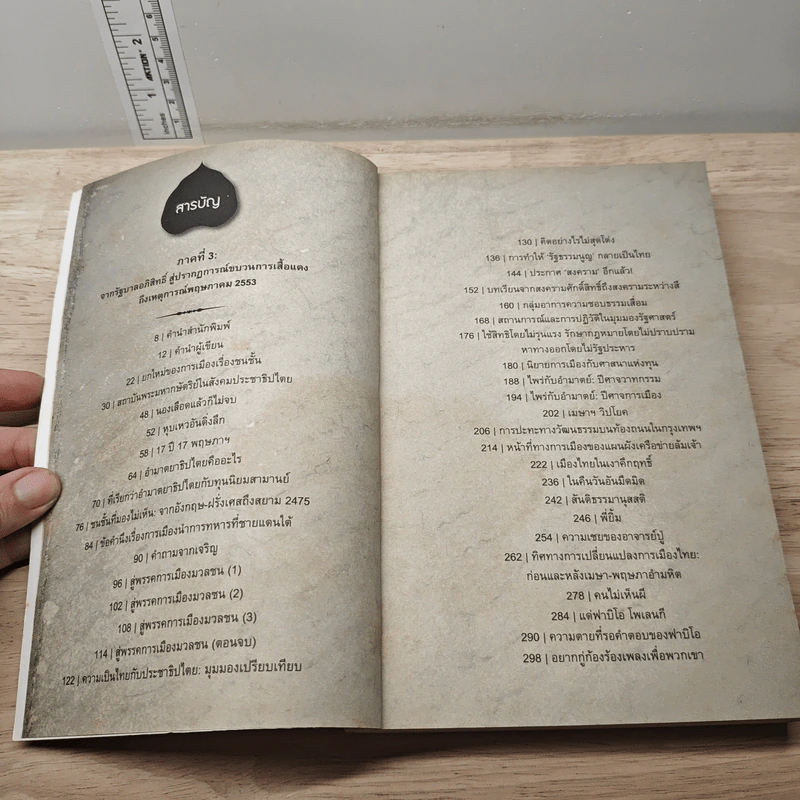 สารบัญ
ภาคที่ 3:
จากรัฐบาลอภิสิทธิ์ สู่ปรากฏการณ์ขบวนการเสื้อแดง
ถึงเหตุการณ์พฤษภาคม 2553
8 | คำนำสำนักพิมพ์
12 | คำนำผู้เขียน
22 | ยกใหม่ของการเมืองเรื่องชนชั้น
30 | สถาบันพระมหากษัตริย์ในสังคมประชาธิปไตย
48 | นองเลือดแล้วก็ไม่จบ
52 | หุบเหวอันดิ่งลึก
58 | 17 ปี 17 พฤษภาฯ
64 | อำมาตยาธิปไตยคืออะไร
70 | ที่เรียกว่าอำมาตยาธิปไตยกับทุนนิยมสามานย์
76 | ชนชั้นที่มองไม่เห็น: จากอังกฤษ-ฝรั่งเศสถึงสยาม 2475
84 | ข้อคำนึงเรื่องการเมืองนำการทหารที่ชายแดนใต้
90 | คำถามจากเจริญ
96 | สู่พรรคการเมืองมวลชน (1)
102 | สู่พรรคการเมืองมวลชน (2)
108 | สู่พรรคการเมืองมวลชน (3)
114 | สู่พรรคการเมืองมวลชน (ตอนจบ)
122 | ความเป็นไทยกับประชาธิปไตย: มุมมองเปรียบเทียบ
130 | คิดอย่างไรไม่สุดโต่ง
136 | การทำให้ 'รัฐธรรมนูญ' กลายเป็นไทย
144 | ประกาศ 'สงคราม' อีกแล้ว!
152 | บทเรียนจากสงครามศักดิ์สิทธิ์ถึงสงครามระหว่างสี
160 | กลุ่มอาการความชอบธรรมเสื่อม
168 | สถานการณ์และการปฏิวัติในมุมมองรัฐศาสตร์
176 | ใช้สิทธิโดยไม่รุนแรง รักษากฎหมายโดยไม่ปราบปราม
หาทางออกโดยไม่รัฐประหาร
180 | นิยายการเมืองกับศาสนาแห่งทุน
188 | ไพร่กับอำมาตย์: ปีศาจวาทกรรม
194 | ไพร่กับอำมาตย์: ปีศาจการเมือง
202 | เมษาฯ วิปโยค
206 | การปะทะทางวัฒนธรรมบนท้องถนนในกรุงเทพฯ
214 | หน้าที่ทางการเมืองของแผนผังเครือข่ายล้มเจ้า
222 | เมืองไทยในเงาคึกฤทธิ์
236 | ในคืนวันอันมืดมิด
242 | สันติธรรมานุสสติ
246 | พี่ยิ้ม
254 | ความเชยของอาจารย์ปู่
262 | ทิศทางการเปลี่ยนแปลงการเมืองไทย:
ก่อนและหลังเมษา-พฤษภาอำมหิต
278 | คนไม่เห็นผี
284 | แด่ฟาบิโอ โพเลนกี
290 | ความตายที่รอคำตอบของฟาบิโอ
298 | อยากกู่ก้องร้องเพลงเพื่อพวกเขา
AKTION
inches
1
2